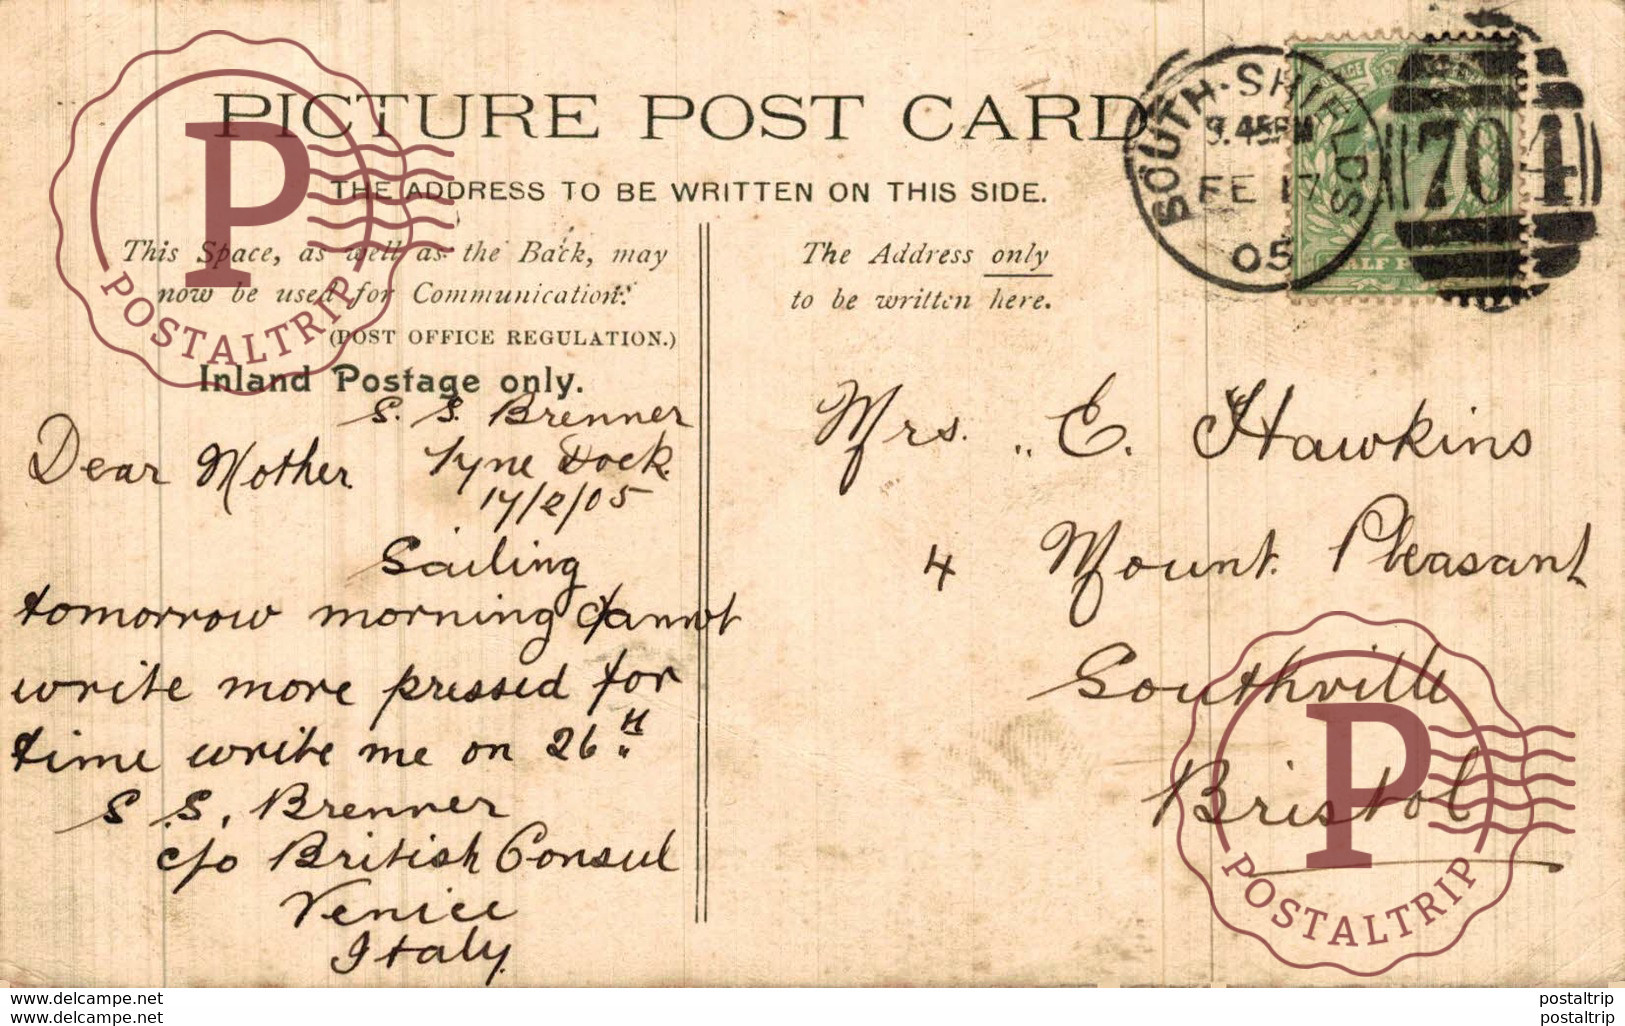 PICTURE POST CARD
THE ADDRESS TO BE WRITTEN ON THIS SIDE.
This Space, as well as the Back, may
now be used for Communication.
(POST OFFICE REGULATION.)
Inland Postage only.
The Address only
to be written here.
SOUTH·SHIELDS
9.45PM
FE 17
05
704
HALF P
S. S. Brenner
Dear Mother Tyne Dock
17/2/05
Sailing
tomorrow morning cannot
write more pressed for
time write me on 26th
S. S. Brenner
c/o British Consul
Venice
Italy
Mrs. E. Hawkins
4 Mount Pleasant
Southville
Bristol
P
POSTALTRIP
P
POSTALTRIP
www.delcampe.net postaltrip
www.delcampe.net postaltrip